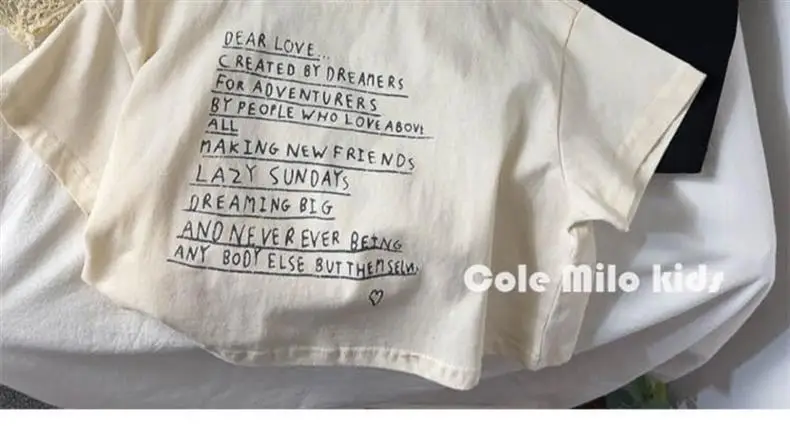 DEAR LOVE...
CREATED BY DREAMERS
FOR ADVENTURERS
BY PEOPLE WHO LOVE ABOVE
ALL
MAKING NEW FRIENDS
LAZY SUNDAYS
DREAMING BIG
AND NEVER EVER BEING
ANY BODY ELSE BUT THEMSELVES
Cole Milo kids